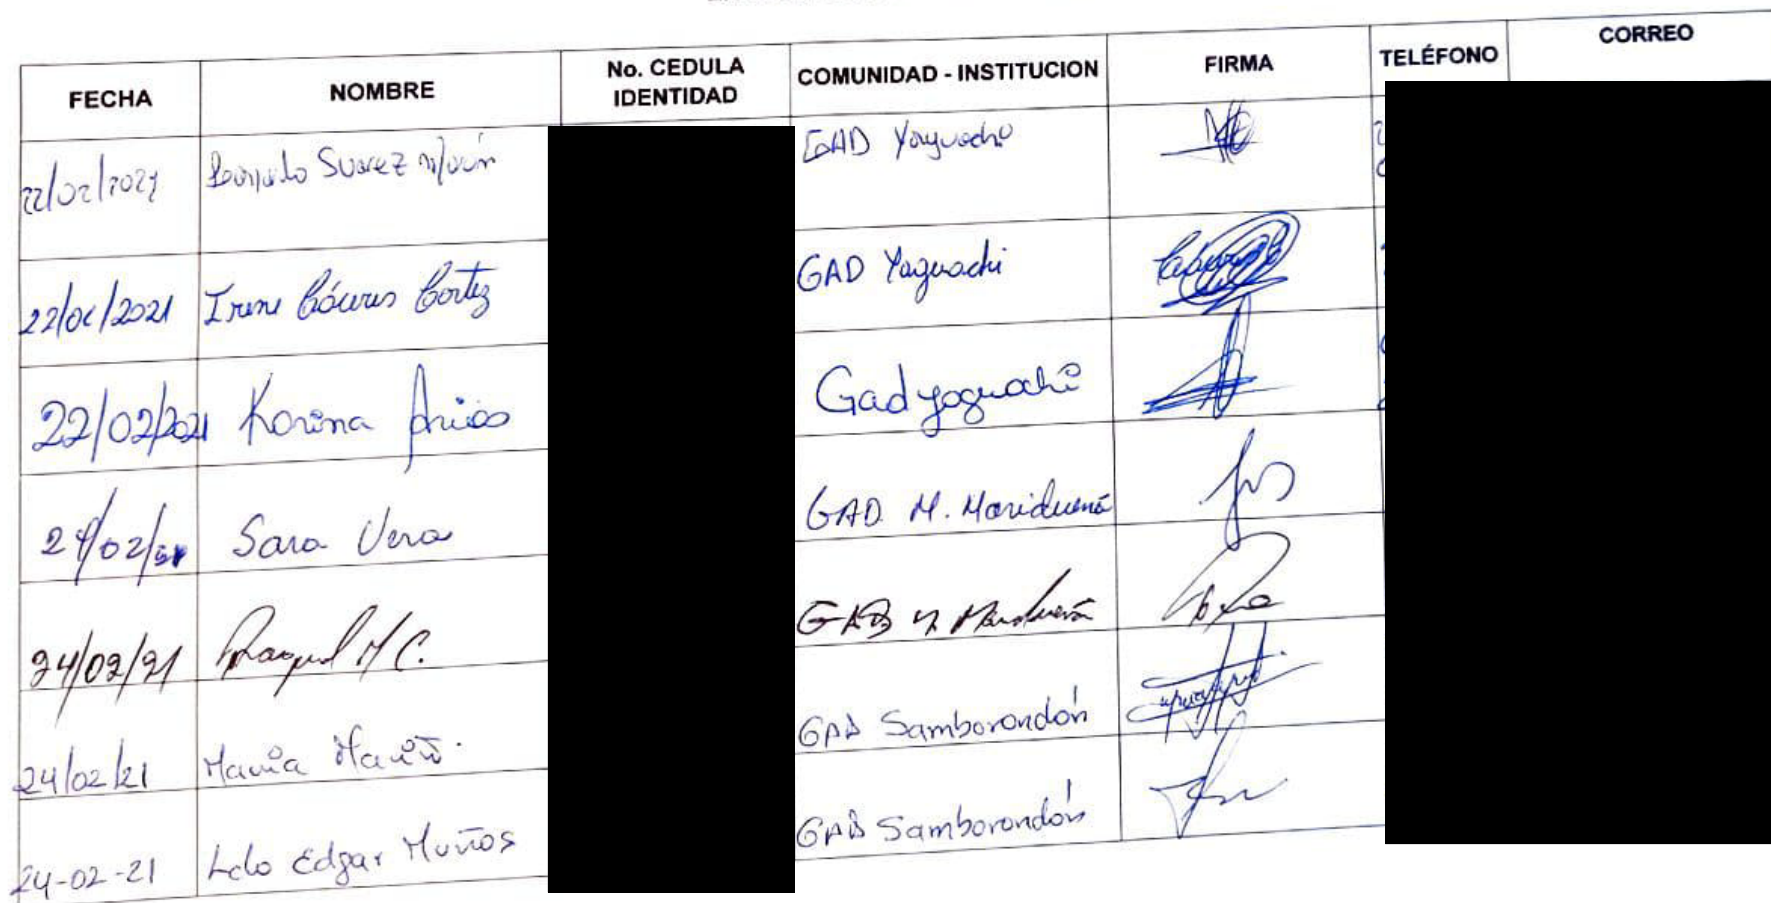 FECHA NOMBRE No. CEDULA IDENTIDAD COMUNIDAD - INSTITUCION FIRMA TELÉFONO CORREO
22/02/2021 Suarez GAD Yaguachi
22/02/2021 Irene Cáceres Cortez GAD Yaguachi
22/02/2021 Karina Arias Gad yaguachi
24/02/21 Sara Vera GAD M. Maridueña
24/02/21 Raquel M C. GAD M Maridueña
24/02/21 Maria GAD Samborondón
24-02-21 Lcdo Edgar Muños GAD Samborondón